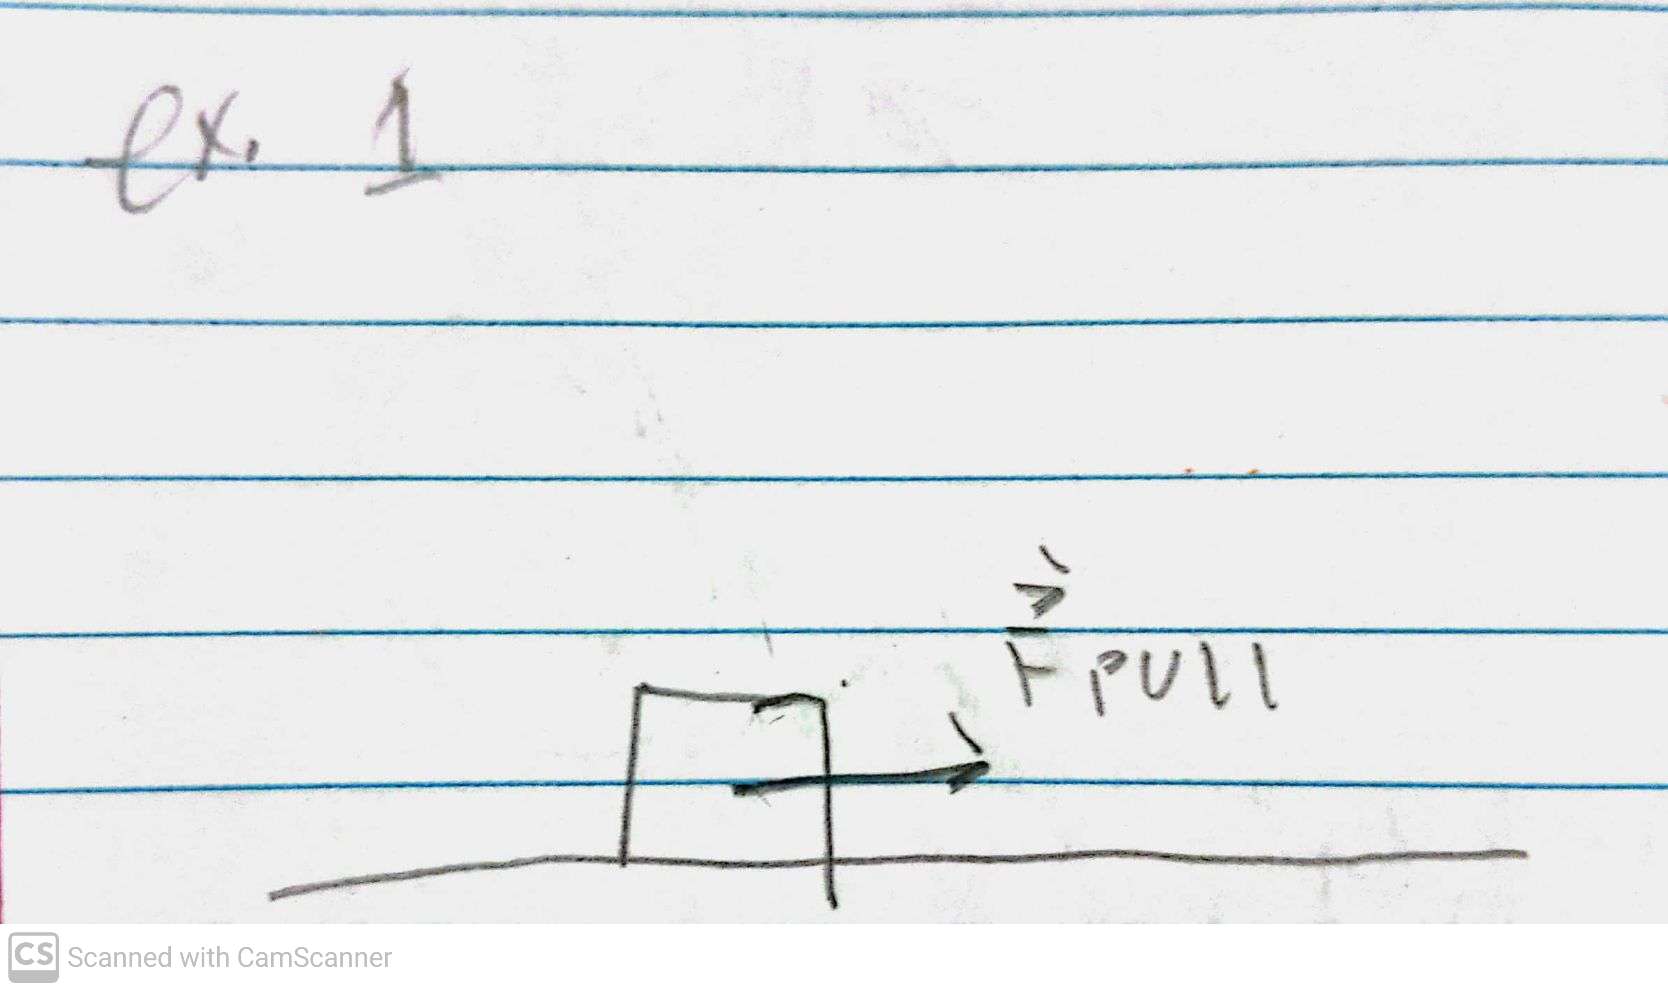 ex. 1
F pull
CS Scanned with CamScanner